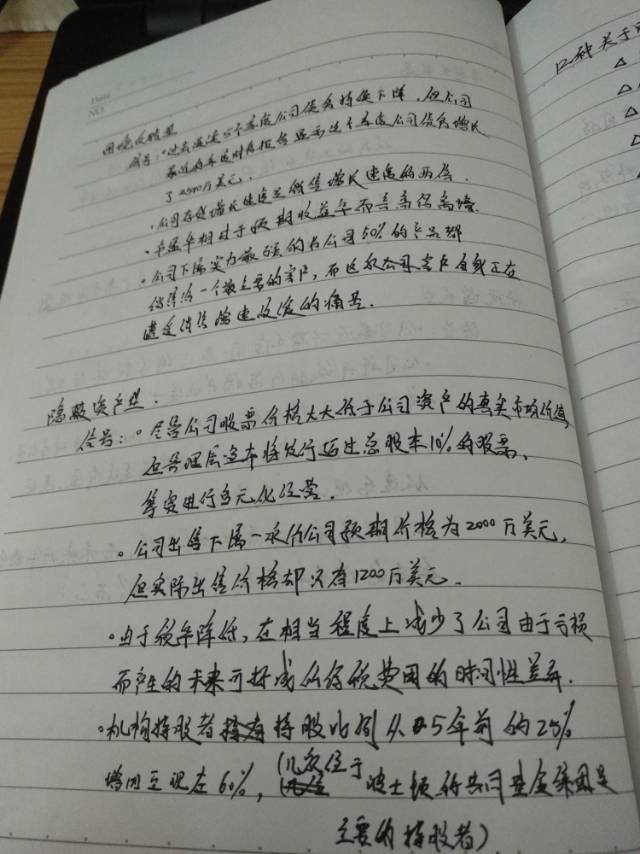 Date
NO.
困境反转型
信号：·过去连续5个季度公司债务持续下降，但公司
最近的季度财务报告显示这个季度公司债务增长
了2500万美元．
·公司存货增长速度是销售增长速度的两倍．
·市盈率相对于预期收益率而言高得离谱．
·公司下属实力最强的子公司50%的产品都
销售给一个最主要的客户，而这家公司客户自身正在
遭受销售增速放缓的痛苦．
隐蔽资产型：
信号：·尽管公司股票价格大大低于公司资产的真实市场价值
但管理层宣布将发行超过总股本10%的股票，
筹资进行多元化经营．
·公司出售下属一家子公司预期价格为2000万美元，
但实际出售价格却只有1200万美元．
·由于税率降低，在相当程度上减少了公司由于亏损
而产生的未来可抵减所得税费用的时间性差异．
·机构持股者持股比例从5年前的25%
增加至现在60%，（几家位于波士顿的共同基金集团是
主要的持股者）
12种关于